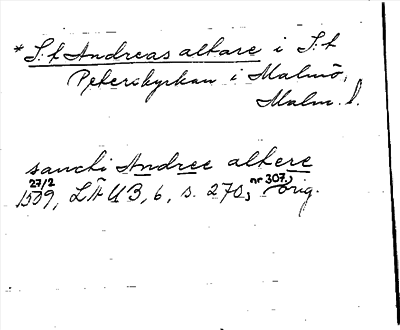 * S:t Andreas altare i S:t
Peterskyrkan i Malmö,
Malm. l.
sancti Andree altere
27/2 1509, LÄUB, 6, s. 270, nr 307, orig.